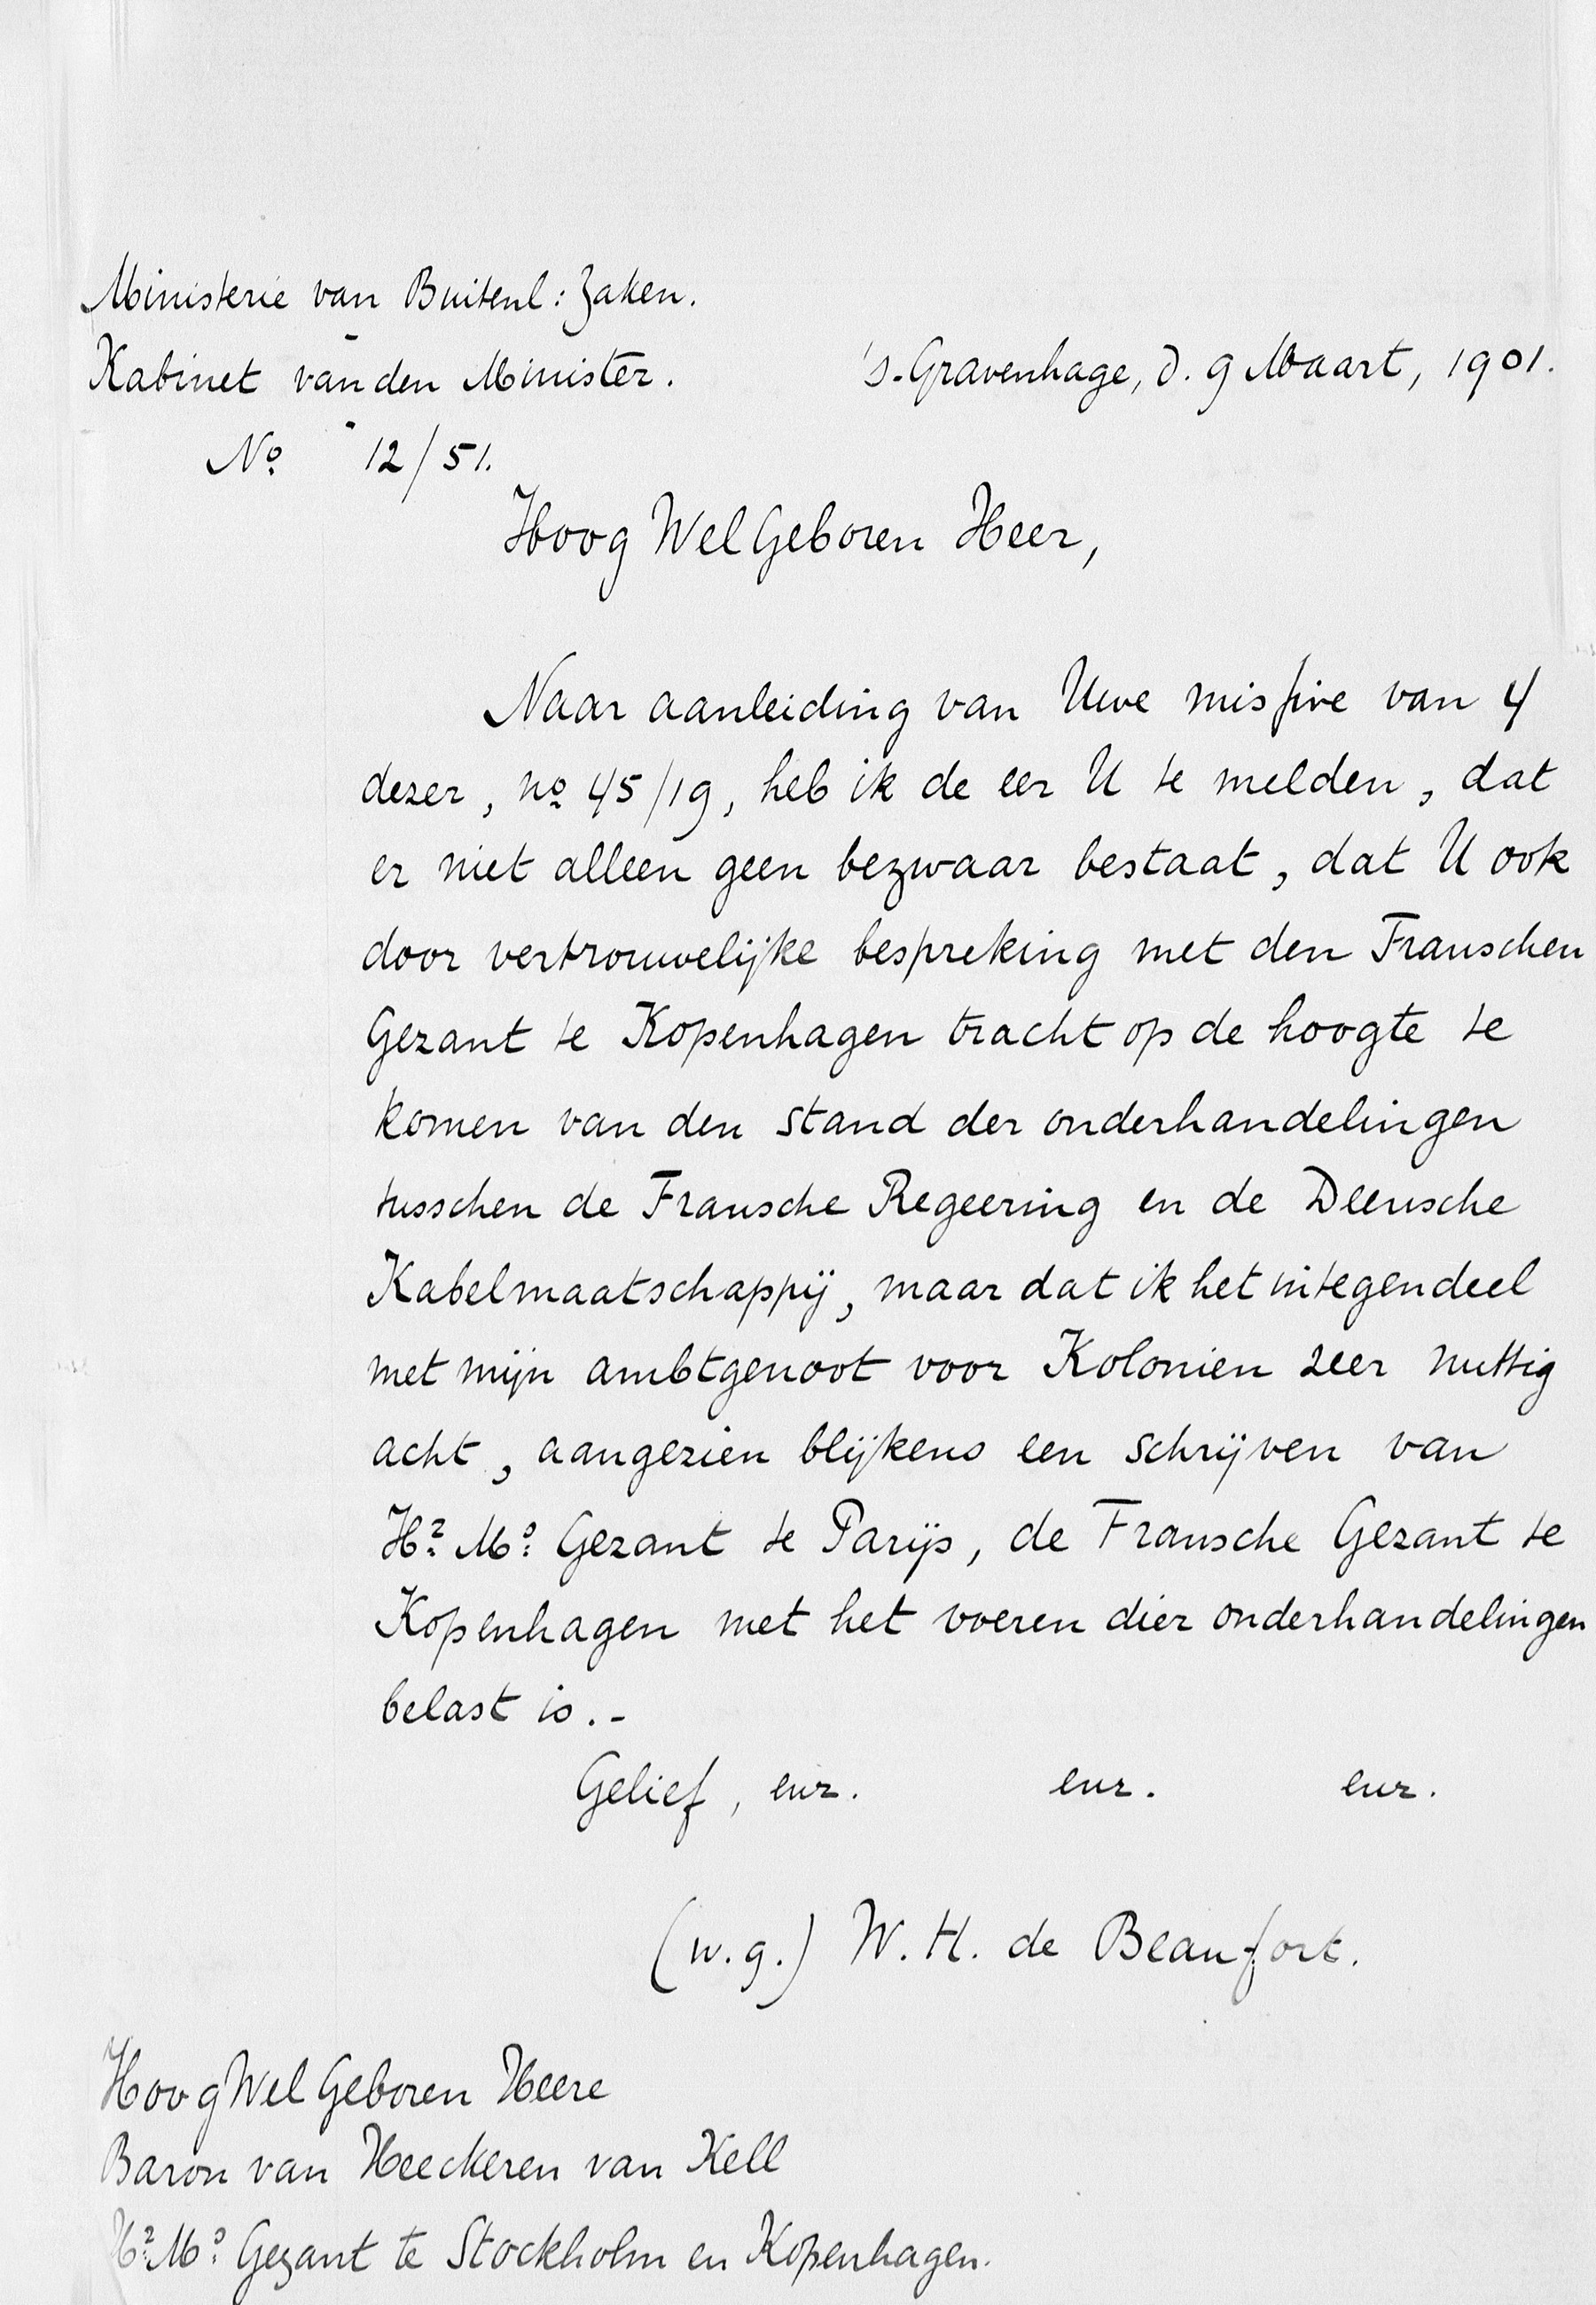 Ministerie van Buitenl: Zaken.
Kabinet van den Minister.
's-Gravenhage, d. 9 Maart, 1901.
No. 12/51.
HoogWelGeboren Heer,
Naar aanleiding van Uwe missive van 4
dezer, no. 45/19, heb ik de eer U te melden, dat
er niet alleen geen bezwaar bestaat, dat U ook
door vertrouwelijke bespreking met den Franschen
Gezant te Kopenhagen tracht op de hoogte te
komen van den stand der onderhandelingen
tusschen de Fransche Regeering en de Deensche
Kabelmaatschappij, maar dat ik het integendeel
met mijn ambtgenoot voor Koloniën zeer nuttig
acht, aangezien blijkens een schrijven van
Hr. Ms. Gezant te Parijs, de Fransche Gezant te
Kopenhagen met het voeren dier onderhandelingen
belast is.-
Gelief, enz. enz. enz.
(w.g.) W. H. de Beaufort.
HoogWelGeboren Heere
Baron van Heeckeren van Kell
Hr. Ms. Gezant te Stockholm en Kopenhagen.